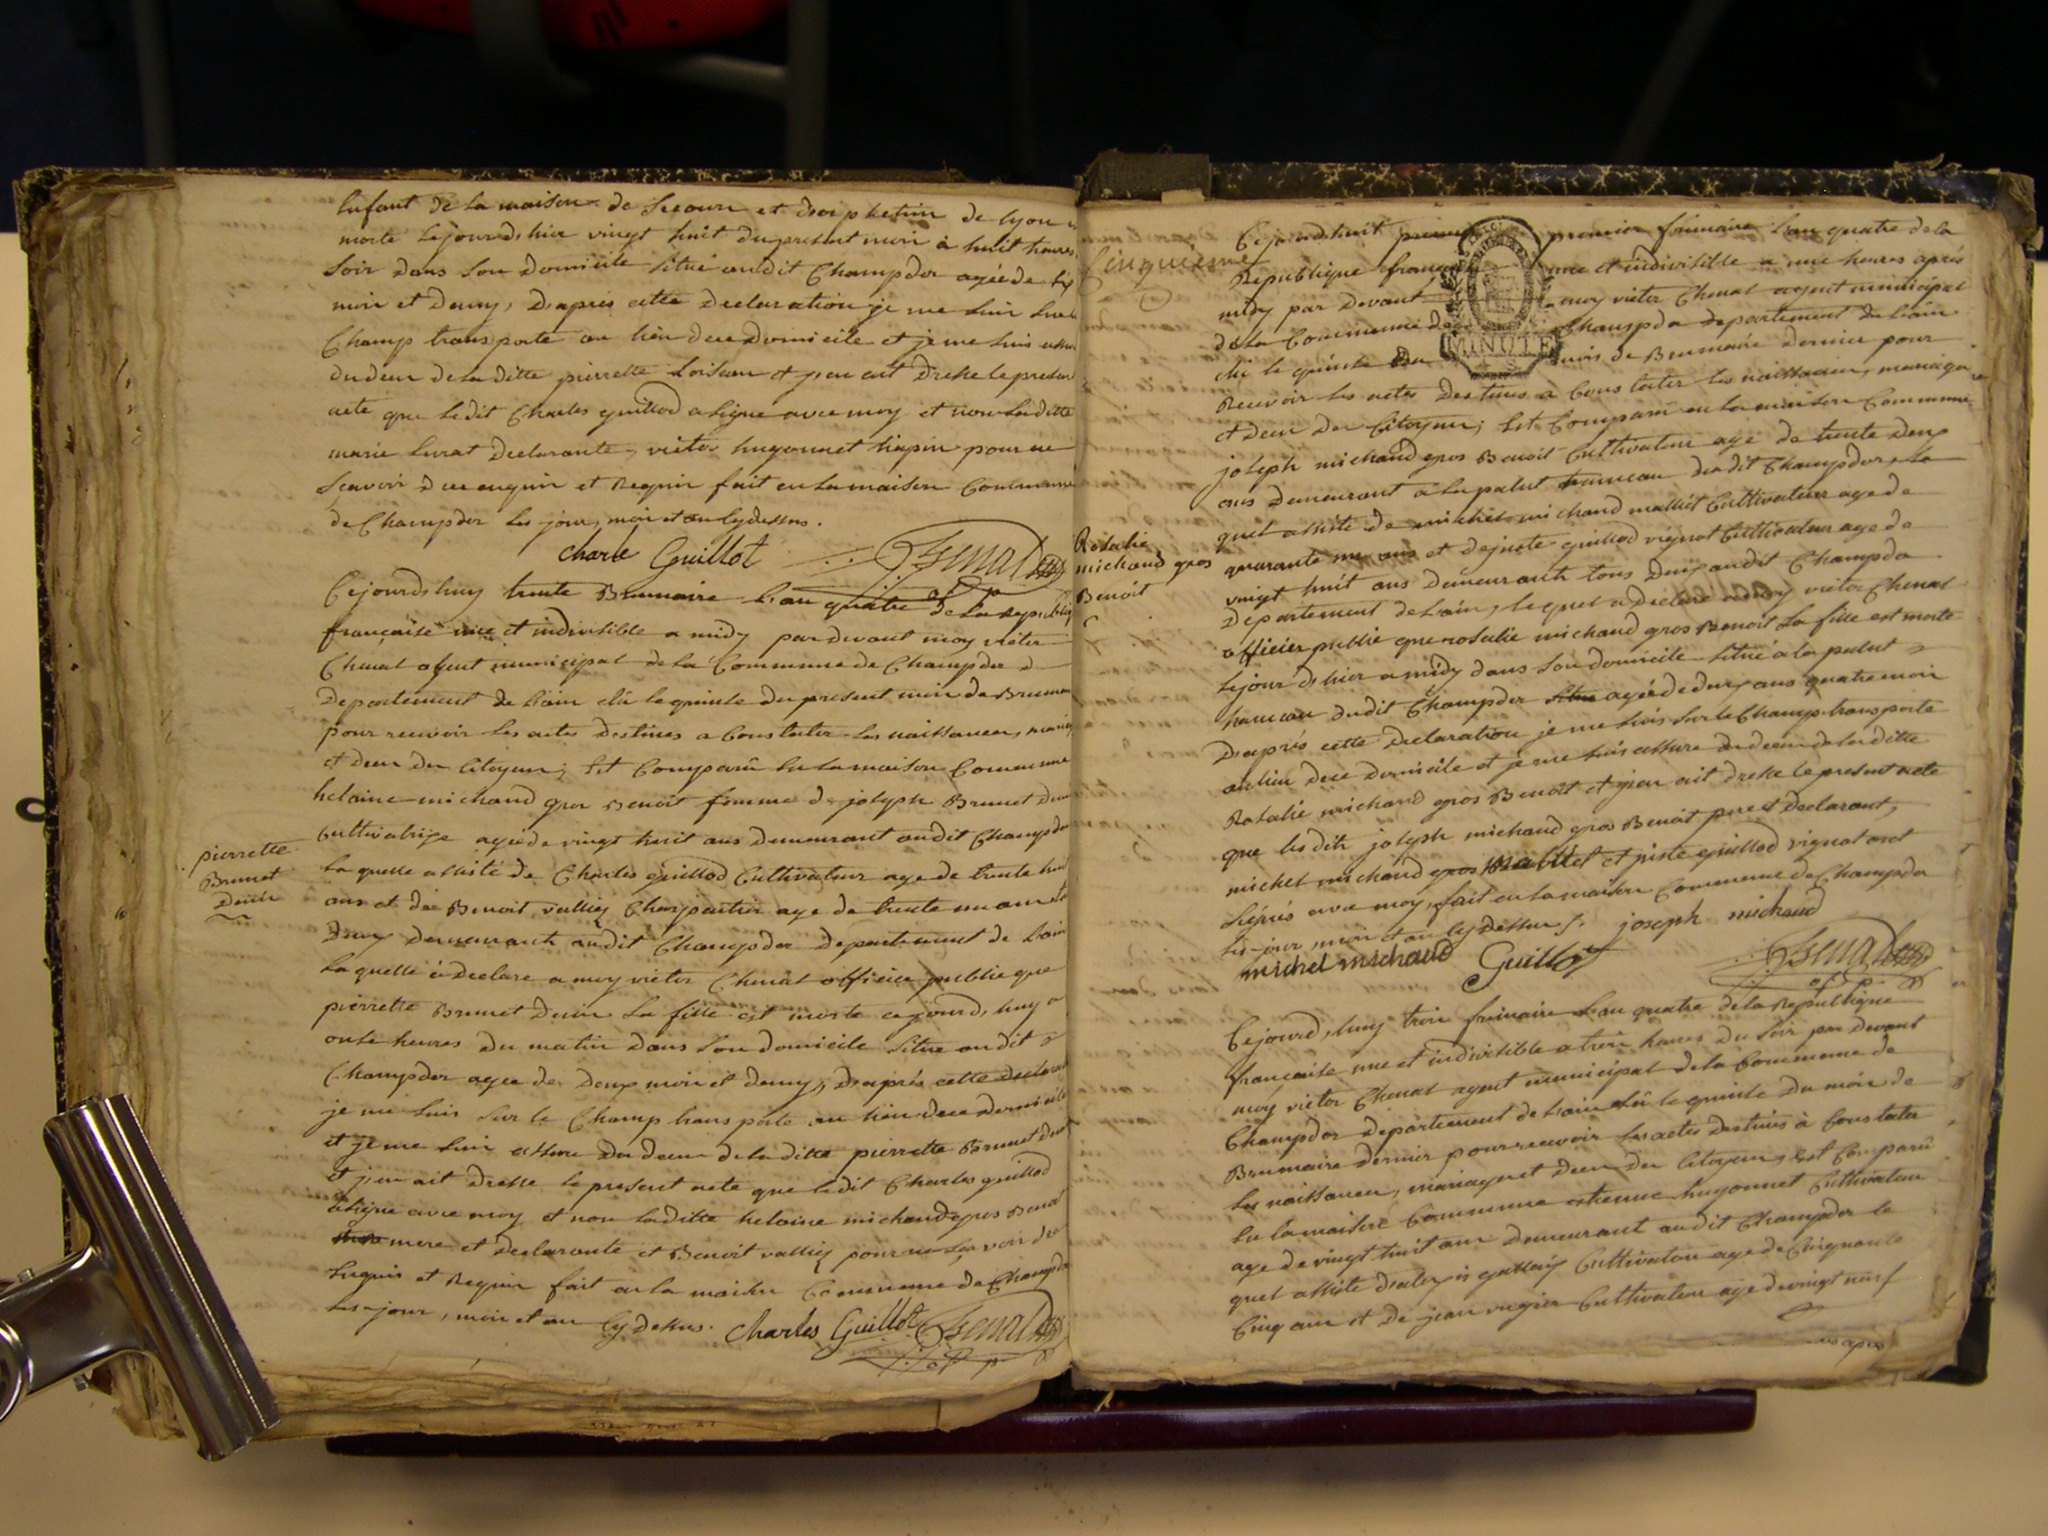 Enfant de la maison de Secour et dorphelin de lyon
morte le jour d'hier vingt huit du present mois à huit heures
Soir dans Son domicile Situé audit Champdor agée de
mois et demy, D'apres cette Declaration je me Suis Sur le
Champ transporte au lieu de ce domicile et je me Suis assuré
du deces de la ditte pierrette et j'en ait dressé le present
acte que ledit Charles guillod a Signe avec moy et non laditte
marie Declarante, victor hugonnet pour ne
Scavoir de ce enquis et Requis fait en la maison Commune
de Champdor les jour, mois et an cy dessus.
Charle Guillot Chenal
Cejourdhuy trente Brumaire L'an quatre de la republique
française une et indivisible a midy par devant moy victor
Chenal agent municipal de la Commune de Champdor
Departement de L'ain élu le quinze du present mois de Brumaire
pour recevoir les actes destinés a Constater les naissances, mariages
et deces des Citoyens, est Comparû en la maison Commune
helaine michaud gros Benoit femme de joseph Brunet
Cultivatrice agée de vingt huit ans demeurant audit Champdor
pierrette
Brunet
la quelle assisté de Charles guillod Cultivateur age de trente huit
ans et de Benoit valliez Charpentier age de trente un ans
Demeurants audit Champdor departement de L'ain
la quelle à declaré a moy victor Chenal officier publie que
pierrette Brunet Sa fille est morte cejourd'huy a
onze heures du matin dans Son domicile Situe audit
Champdor agee de Deux mois et demy, D'apres cette declaration
je me Suis Sur le Champ transporte au lieu de ce domicile
et je me Suis assure du deces de la ditte pierrette Brunet
et j'en ait dresse le present acte que ledit Charles guillod
a Signe avec moy et non laditte helaine michaud gros Benoit
mere et declarante et Benoit valliez pour ne Sçavoir de ce
Enquis et Requis fait en la maison Commune de Champdor
les jour, mois et an Cy dessus. Charles Guillot Chenal
Cinquieme
Cejourdhuit premier frimaire L'an quatre de la
Republique française une et indivisible a une heures aprés
midy par devant moy victor Chenal agent municipal
de la Commune de Champdor departement de L'ain
élu le quinze du mois de Brumaire dernier pour
Recevoir les actes Destinés a Constater les naissances, mariages
et deces des Citoyens, Est Comparû en la maison Commune
joseph michaud gros Benoit Cultivateur age de trente deux
ans demeurant à la palut hameau dudit Champdor, le
quel assisté de michel michaud malliet Cultivateur age de
Rosalie
michaud gros
Benoit
quarante un ans et de juste guillod vignat Cultivateur age de
vingt huit ans demeurants tous deux audit Champdor
Departement de L'ain, lequel a declaré a moy victor Chenal
officier publie que rosalie michaud gros Benoit Sa fille est morte
le jour d'hier a midy dans Son domicile Situé à la palut
hameau dudit Champdor agée de deux ans quatre mois
D'aprés cette declaration je me Suis Sur le Champ transporte
au lieu de ce domicile et je me Suis assure du deces de la ditte
Rosalie michaud gros Benoit et j'en ait dresse le present acte
que lesdits joseph michaud gros Benoit pere et declarant,
michel michaud malliet et juste guillod vignat ont
Signés avec moy, fait en la maison Commune de Champdor
les jour, mois et an cy dessus. joseph michaud
michel michaud Guillot Chenal
MINUTE
Cejourd'huy trois frimaire L'an quatre de la Republique
française une et indivisible a trois heures du Soir par devant
moy victor Chenal agent municipal de la Commune de
Champdor departement de L'ain élû le quinze du mois de
Brumaire dernier pour recevoir les actes destinés à Constater
les naissances, mariages et deces des Citoyens, est Comparû
En la maison Commune etienne hugonnet Cultivateur
age de vingt huit ans demeurant audit Champdor le
quel assisté d'alexis Cultivateur age de Cinquante
Cinq ans et de jean Cultivateur age de vingt neuf